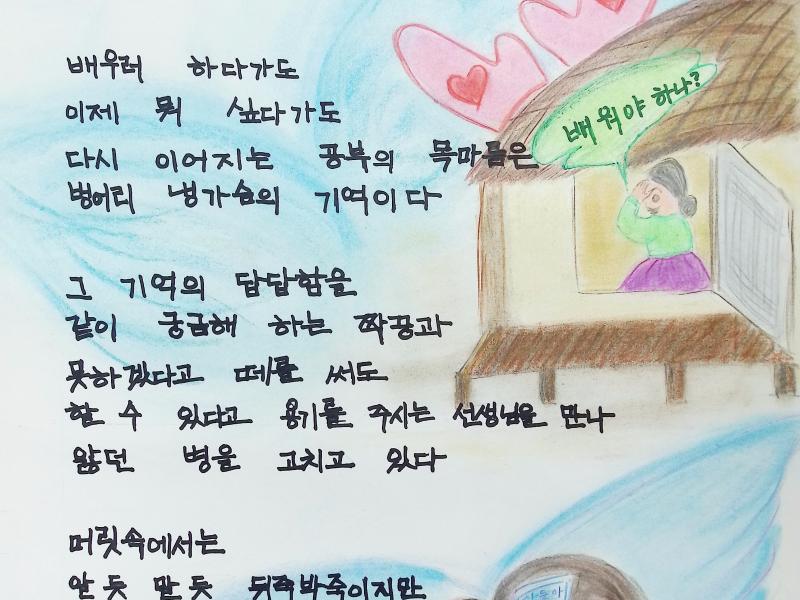 배우러 하다가도
이제 뭐 싶다가도
다시 이어지는 공부의 목마름은
벙어리 냉가슴의 기억이다
배워야 하나?
그 기억의 답답함을
같이 궁금해 하는 짝꿍과
못하겠다고 떼를 써도
할 수 있다고 용기를 주시는 선생님을 만나
앓던 병을 고치고 있다
머릿속에서는
안 듯 말 듯 뒤죽박죽이지만